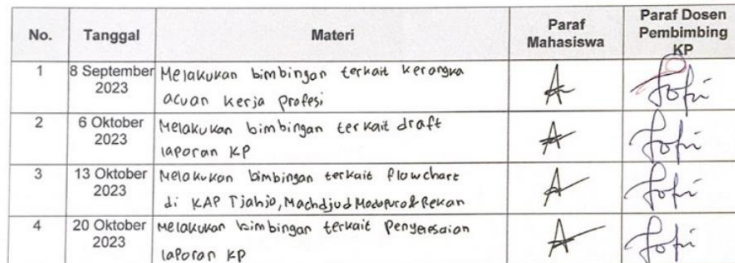 No. Tanggal Materi Paraf Mahasiswa Paraf Dosen Pembimbing KP
1 8 September 2023 Melakukan bimbingan terkait kerangka
acuan kerja Profesi
2 6 Oktober 2023 Melakukan bimbingan terkait draft
laporan KP
3 13 Oktober 2023 Melakukan bimbingan terkait flowchart
di KAP Tjahjo, Machdjud Modopuro & Rekan
4 20 Oktober 2023 Melakukan bimbingan terkait Penyelesaian
laporan KP